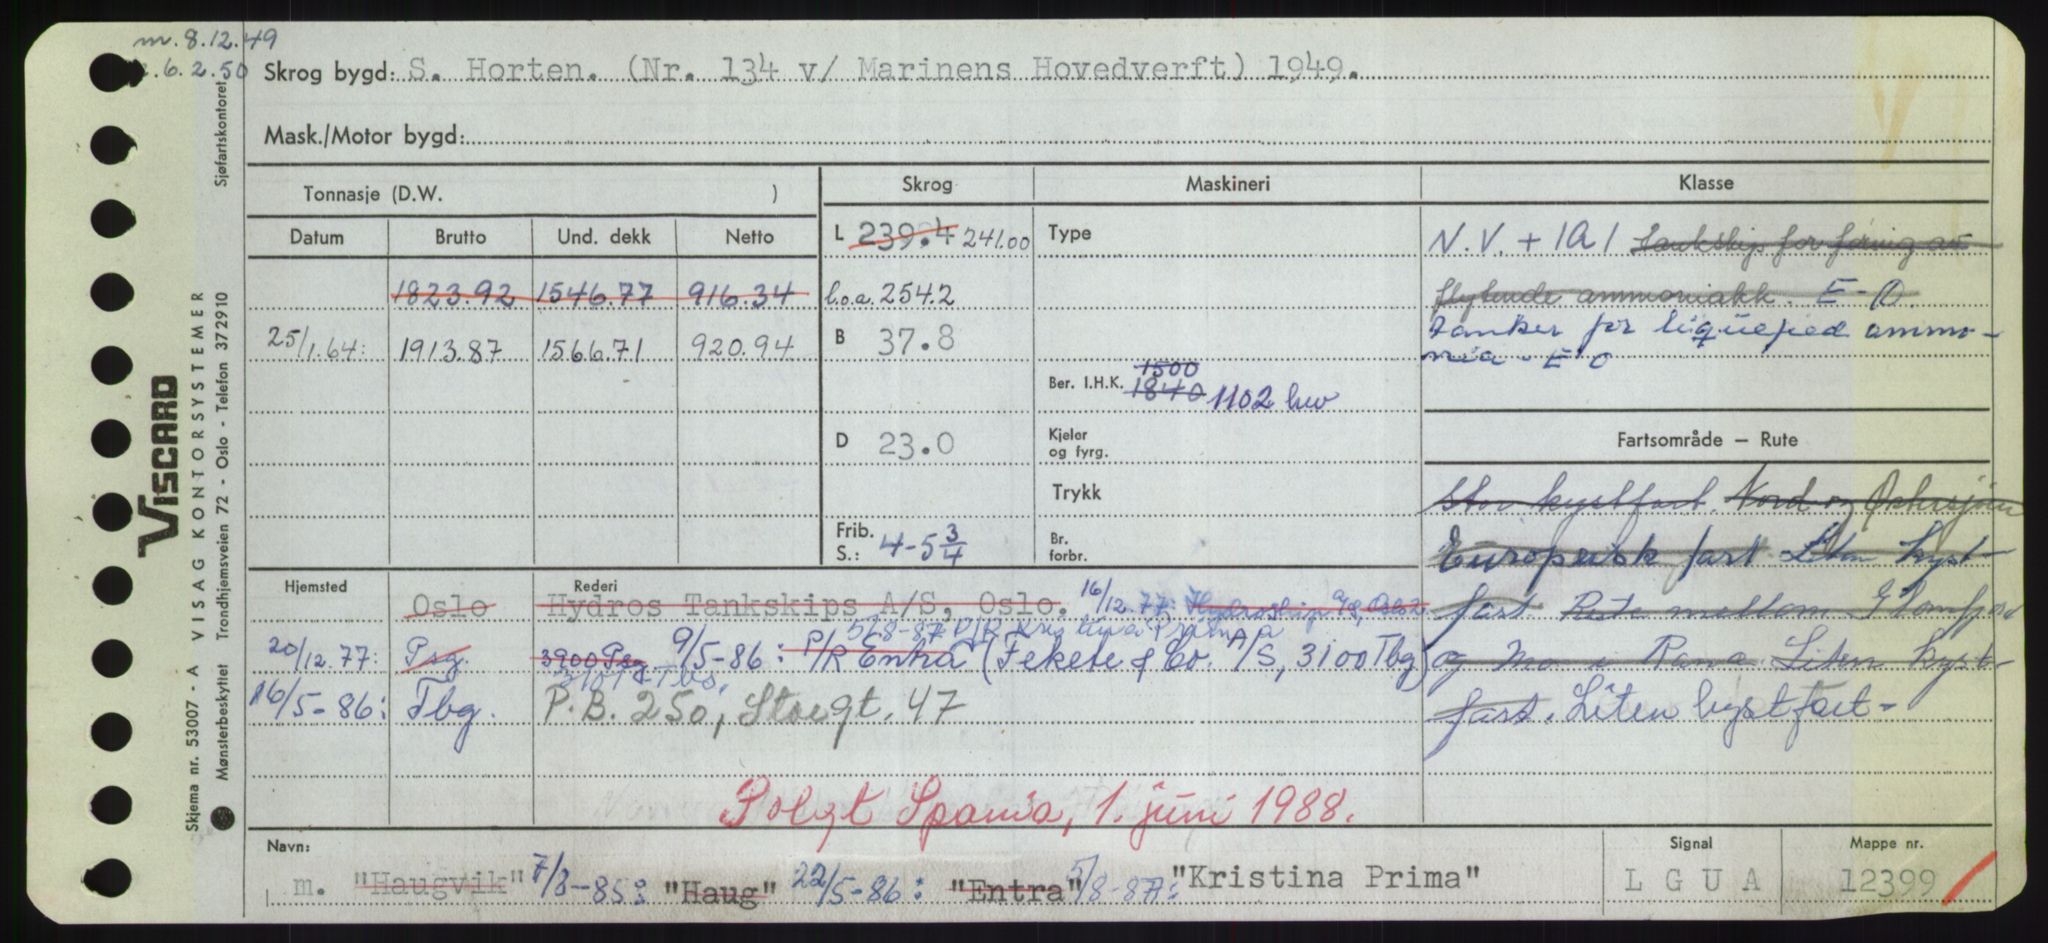 m. 8.12.49
6.2.50
Skrog bygd: S. Horten. (Nr. 134 v/ Marinens Hovedverft) 1949.
Mask./Motor bygd:
Tonnasje (D.W. )
Skrog
Maskineri
Klasse
Datum Brutto Und. dekk Netto
L 239.4 241.00
Type
N.V. + 1A1 Tankskip for føring av
1823.92 1546.77 916.34
l.o.a. 254.2
flytende ammoniakk. E-O.
25/1.64: 1913.87 1566.71 920.94
B 37.8
tanker for liquefied ammo-
nia - E O
Ber. I.H.K. 1500
1840 1102 kw
D 23.0
Kjeler
og fyrg.
Fartsområde – Rute
Trykk
Stor kystfart. Nord og Østersjøen
Frib.
S.: 4-5 3/4
Br.
forbr.
Europeisk fart Liten kyst-
Hjemsted Rederi
Oslo Hydros Tankskips A/S, Oslo. 16/12.77: Hydroship a/s, Oslo 2
fart Rute mellom Glomfjord
5/8-87 P/R Kristina Prima
20/12.77: Psg. 3900 Psg. 9/5-86: P/R Entra (Fekete & Co. A/S, 3100 Tbg)
og Mo i Rana Liten kyst-
16/5-86: Tbg. P.B. 250, Storgt. 47
fart. Liten kystfart-
Solgt Spania, 1. juni 1988.
Navn: Signal Mappe nr.
m. "Haugvik" 7/3-85: "Haug" 22/5-86: "Entra" 5/8-87: "Kristina Prima" L G U A 12399
Sjøfartskontoret
VISCARD
Skjema nr. 53007 - A VISAG KONTORSYSTEMER
Mønsterbeskyttet Trondhjemsveien 72 - Oslo - Telefon 372910